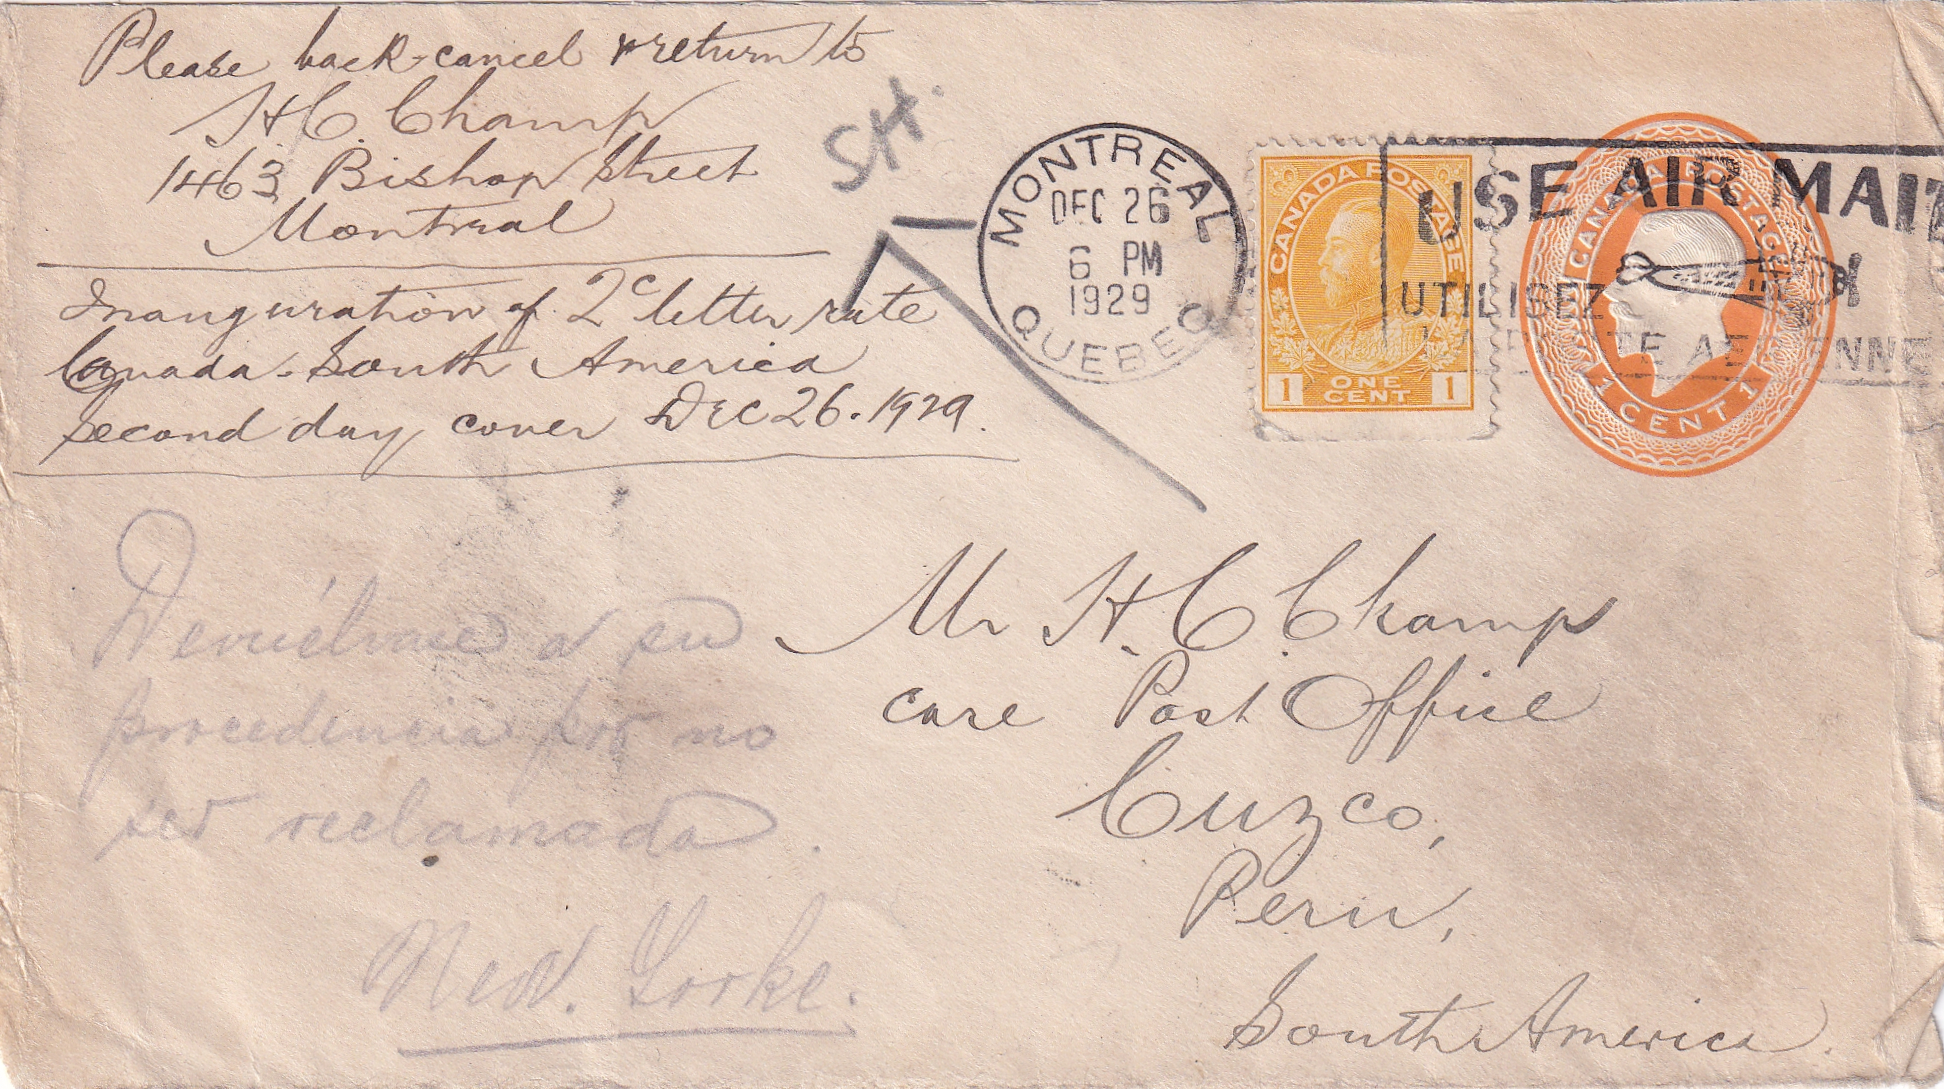 Please back-cancel & return to
H C. Champ
1463 Bishop Street
Montreal
SH.
Inauguration of 2c letter rate
Canada-South America
Second day cover DEC 26. 1929.
MONTREAL
DEC 26
6 PM
1929
QUEBEC
CANADA POSTAGE
1 ONE CENT 1
USE AIR MAIL
UTILISEZ
LA POSTE AERIENNE
CANADA POSTAGE
1 CENT 1
Mr H. C. Champ
care Post Office
Cuzco,
Peru,
South America.
Devuélvase a su
procedencia por no
ser reclamada.
New. Yorke.